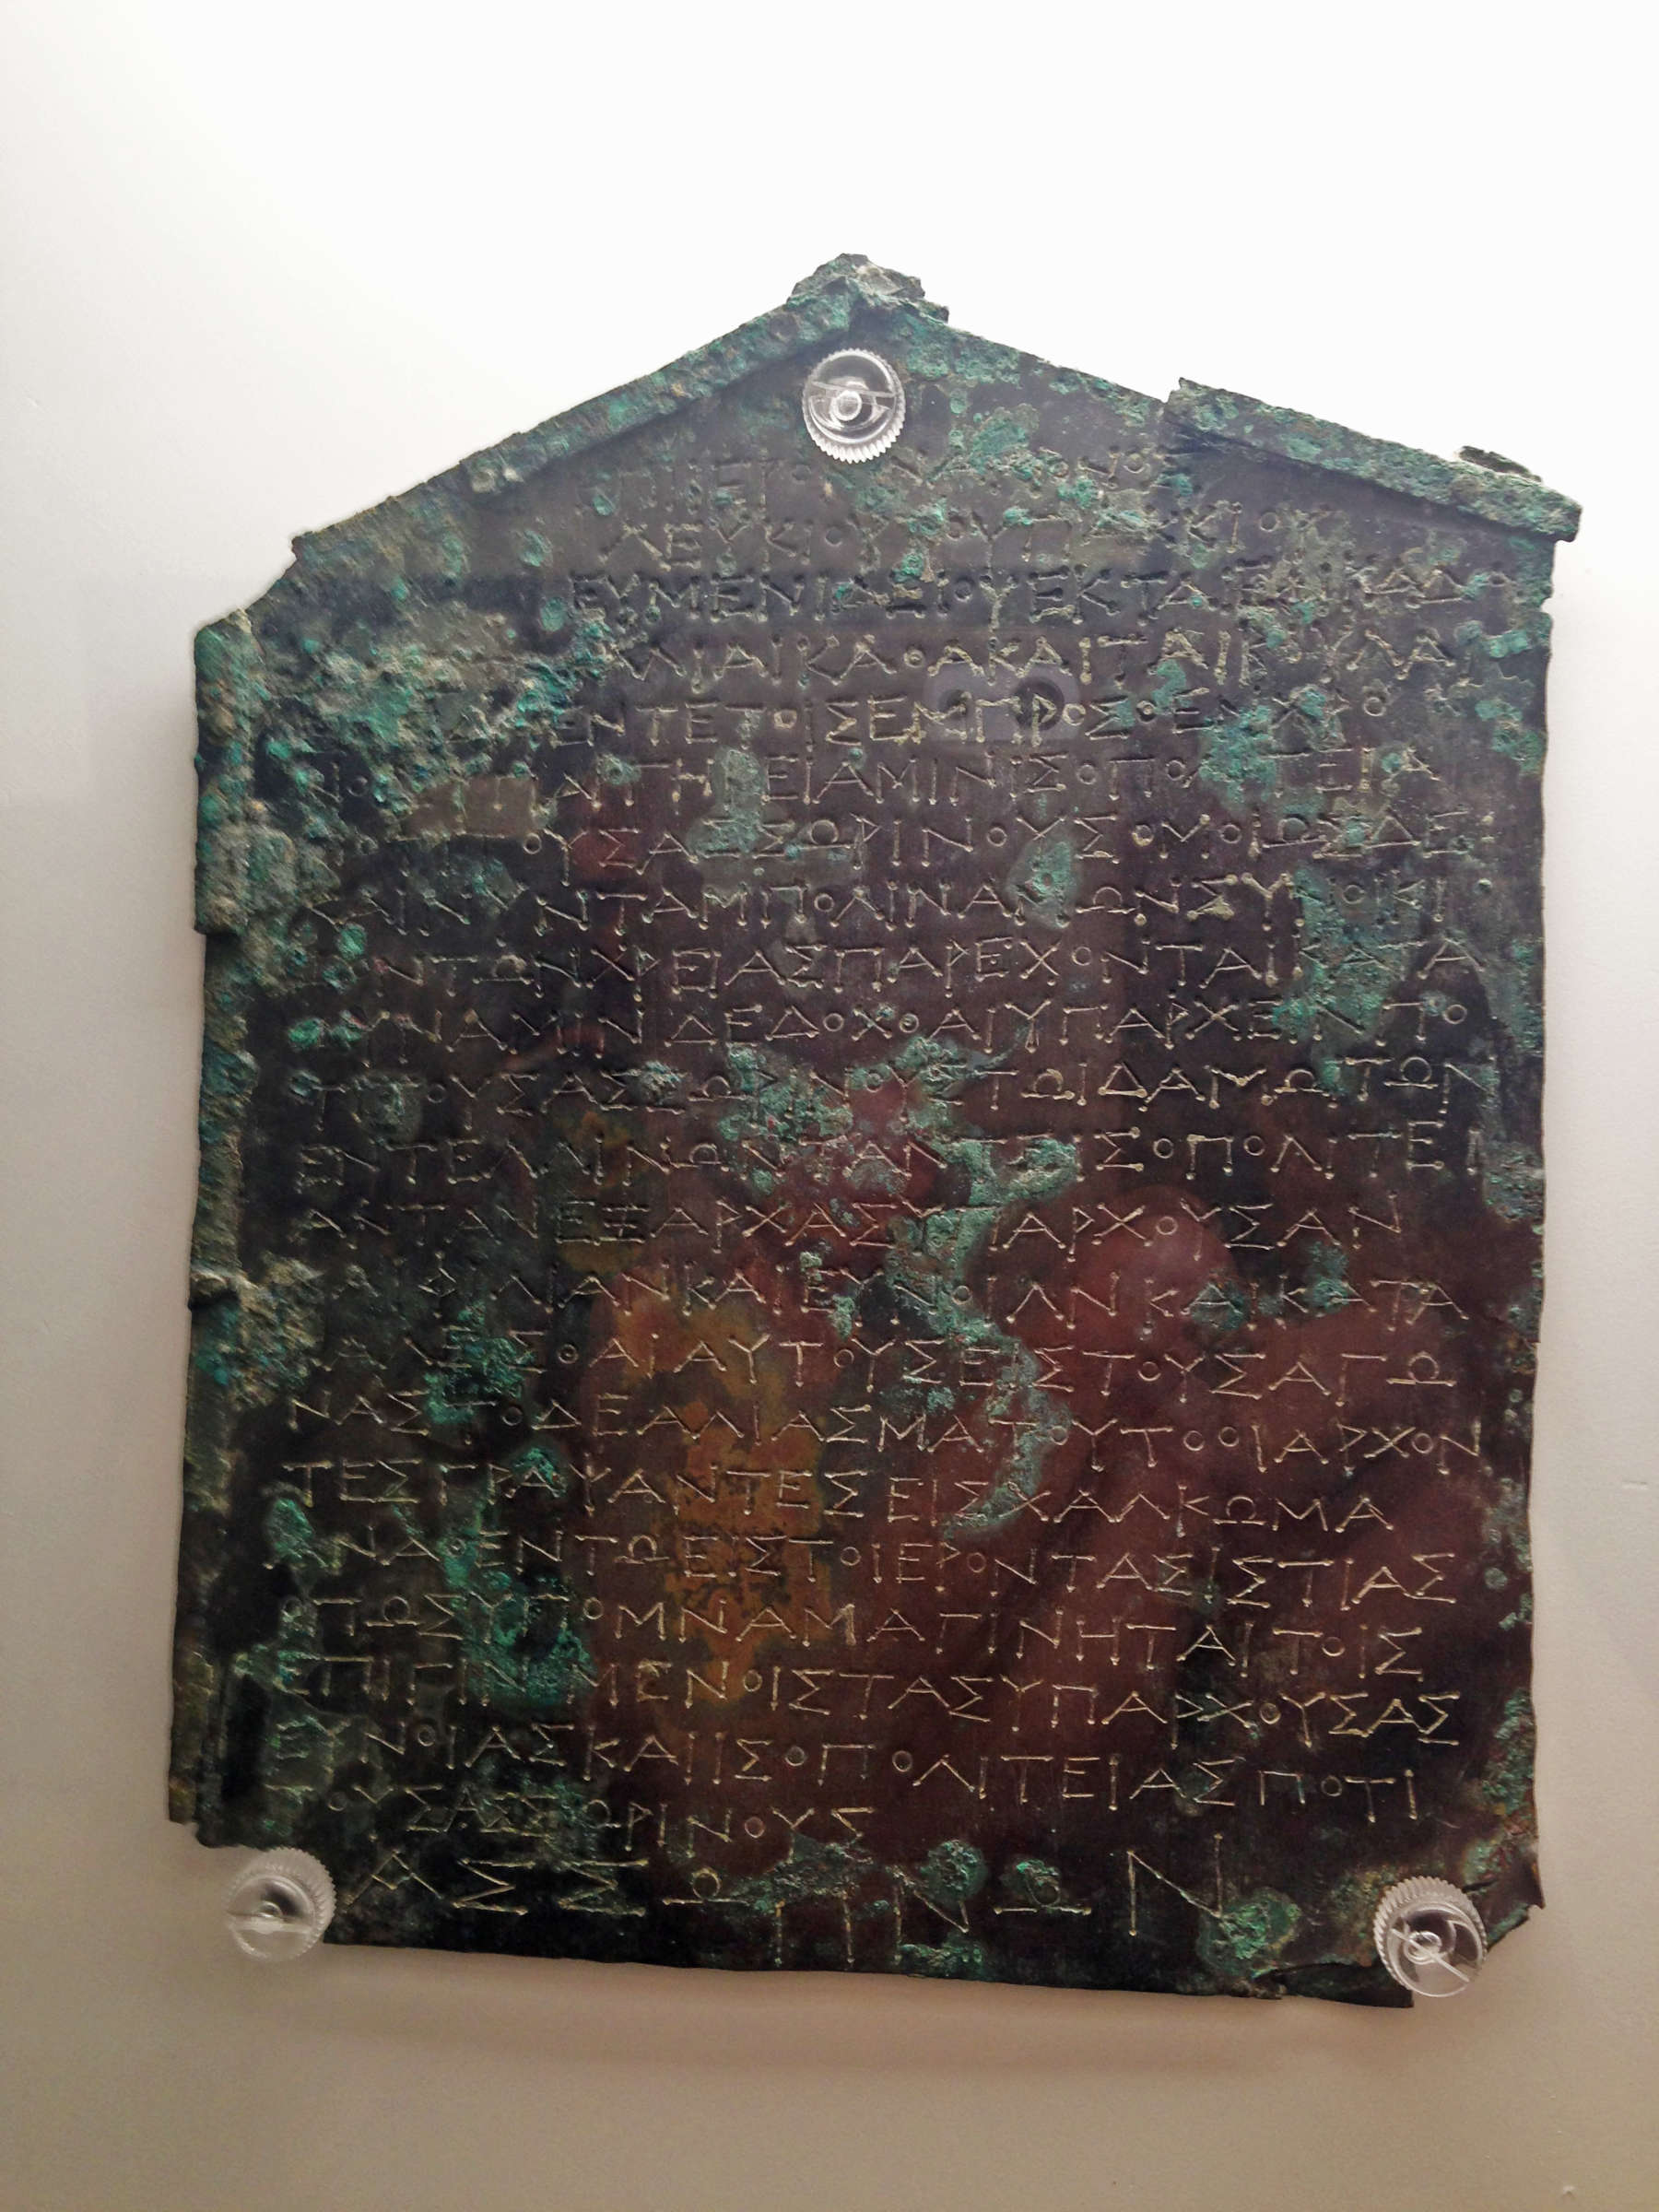 ΛΕΥΚΙΟΥ ΤΟΥ ΠΑΚΚΙΟΥ
ΕΥΜΕΝΙΔΕΙΟΥ ΕΚΤΑΙ
ΑΛΙΑΙ ΚΑΘΑ ΚΑΙ ΤΑΙ ΒΟΥΛΑΙ
ΕΝ ΤΕ ΤΟΙΣ ΕΜΠΡΟΣΘΕΝ ΧΡΟ
ΑΜΙΝ ΙΣΟΠΟΛΙΤΕΙΑ
ΤΟΥΣ ΑΣΣΩΡΙΝΟΥΣ ΟΜΟΙΩΣ ΔΕ
ΚΑΙ ΝΥΝ ΤΑΜ ΠΟΛΙΝ ΑΜΩΝ ΣΥΝΟΙΚΙ
ΖΟΝΤΩΝ ΧΡΕΙΑΣ ΠΑΡΕΧΟΝΤΑΙ ΚΑΤΑ
ΔΥΝΑΜΙΝ ΔΕΔΟΧΘΑΙ ΥΠΑΡΧΕΙΝ ΠΟ
ΤΙ ΤΟΥΣ ΑΣΣΩΡΙΝΟΥΣ ΤΩΙ ΔΑΜΩ ΤΩΝ
ΕΝΤΕΛΛΙΝΩΝ ΤΑΝ ΤΕ ΙΣΟΠΟΛΙΤΕΙ
ΑΝ ΤΑΝ ΕΞ ΑΡΧΑΣ ΥΠΑΡΧΟΥΣΑΝ
ΚΑΙ ΦΙΛΙΑΝ ΚΑΙ ΕΥΝΟΙΑΝ ΚΑΙ ΚΑΤΑ
ΚΑΛΕΙΣΘΑΙ ΑΥΤΟΥΣ ΕΙΣ ΤΟΥΣ ΑΓΩ
ΝΑΣ ΤΟ ΔΕ ΑΛΙΑΣΜΑ ΤΟΥΤΟ ΟΙ ΑΡΧΟΝ
ΤΕΣ ΓΡΑΨΑΝΤΕΣ ΕΙΣ ΧΑΛΚΩΜΑ
ΑΝΑΘΕΝΤΩ ΕΙΣ ΤΟ ΙΕΡΟΝ ΤΑΣ ΙΣΤΙΑΣ
ΟΠΩΣ ΥΠΟΜΝΑΜΑ ΓΙΝΗΤΑΙ ΤΟΙΣ
ΕΠΙΓΙΝΟΜΕΝΟΙΣ ΤΑΣ ΥΠΑΡΧΟΥΣΑΣ
ΕΥΝΟΙΑΣ ΚΑΙ ΙΣΟΠΟΛΙΤΕΙΑΣ ΠΟΤΙ
ΤΟΥΣ ΑΣΣΩΡΙΝΟΥΣ
ΑΣΣΩΡΙΝΩΝ